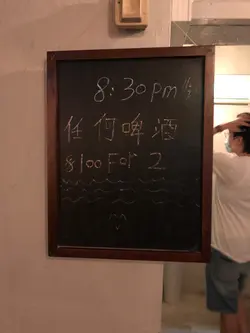 8:30pm
任何啤酒
$100 For 2